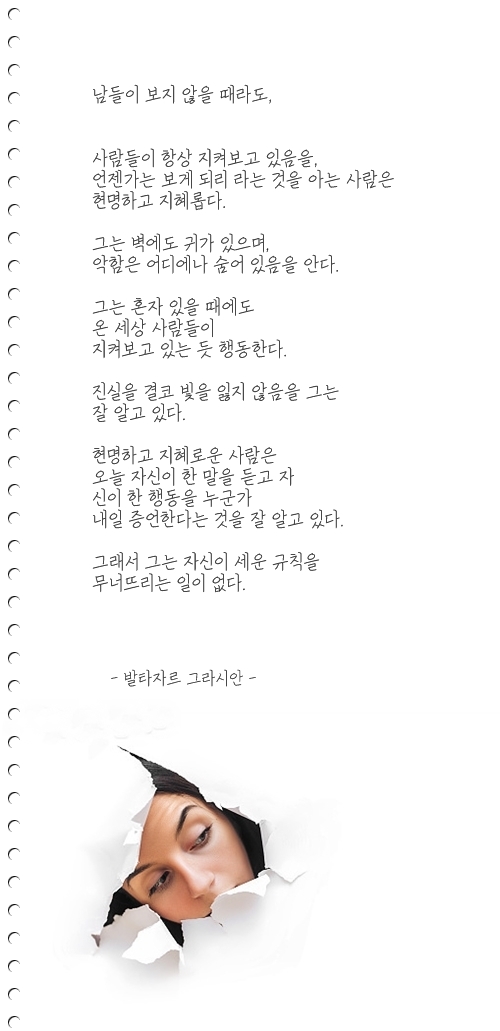 남들이 보지 않을 때라도,
사람들이 항상 지켜보고 있음을,
언젠가는 보게 되리 라는 것을 아는 사람은
현명하고 지혜롭다.
그는 벽에도 귀가 있으며,
악함은 어디에나 숨어 있음을 안다.
그는 혼자 있을 때에도
온 세상 사람들이
지켜보고 있는 듯 행동한다.
진실을 결코 빛을 잃지 않음을 그는
잘 알고 있다.
현명하고 지혜로운 사람은
오늘 자신이 한 말을 듣고 자
신이 한 행동을 누군가
내일 증언한다는 것을 잘 알고 있다.
그래서 그는 자신이 세운 규칙을
무너뜨리는 일이 없다.
- 발타자르 그라시안 -